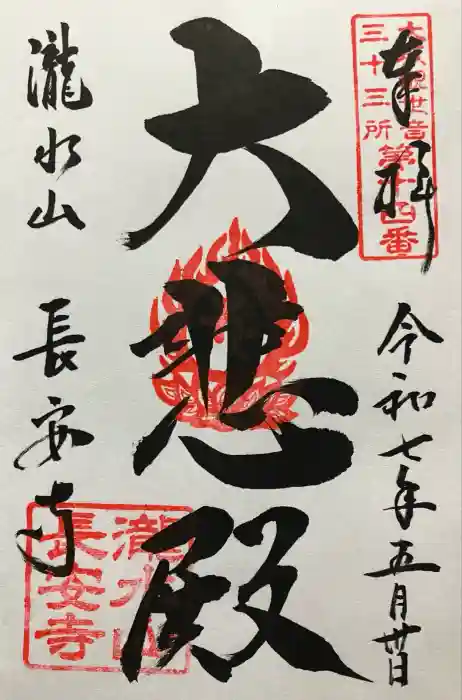 奉拝
観世音
三十三所
第十四番
令和七年五月廿日
大悲殿
瀧水山 長安寺
瀧水山
長安寺